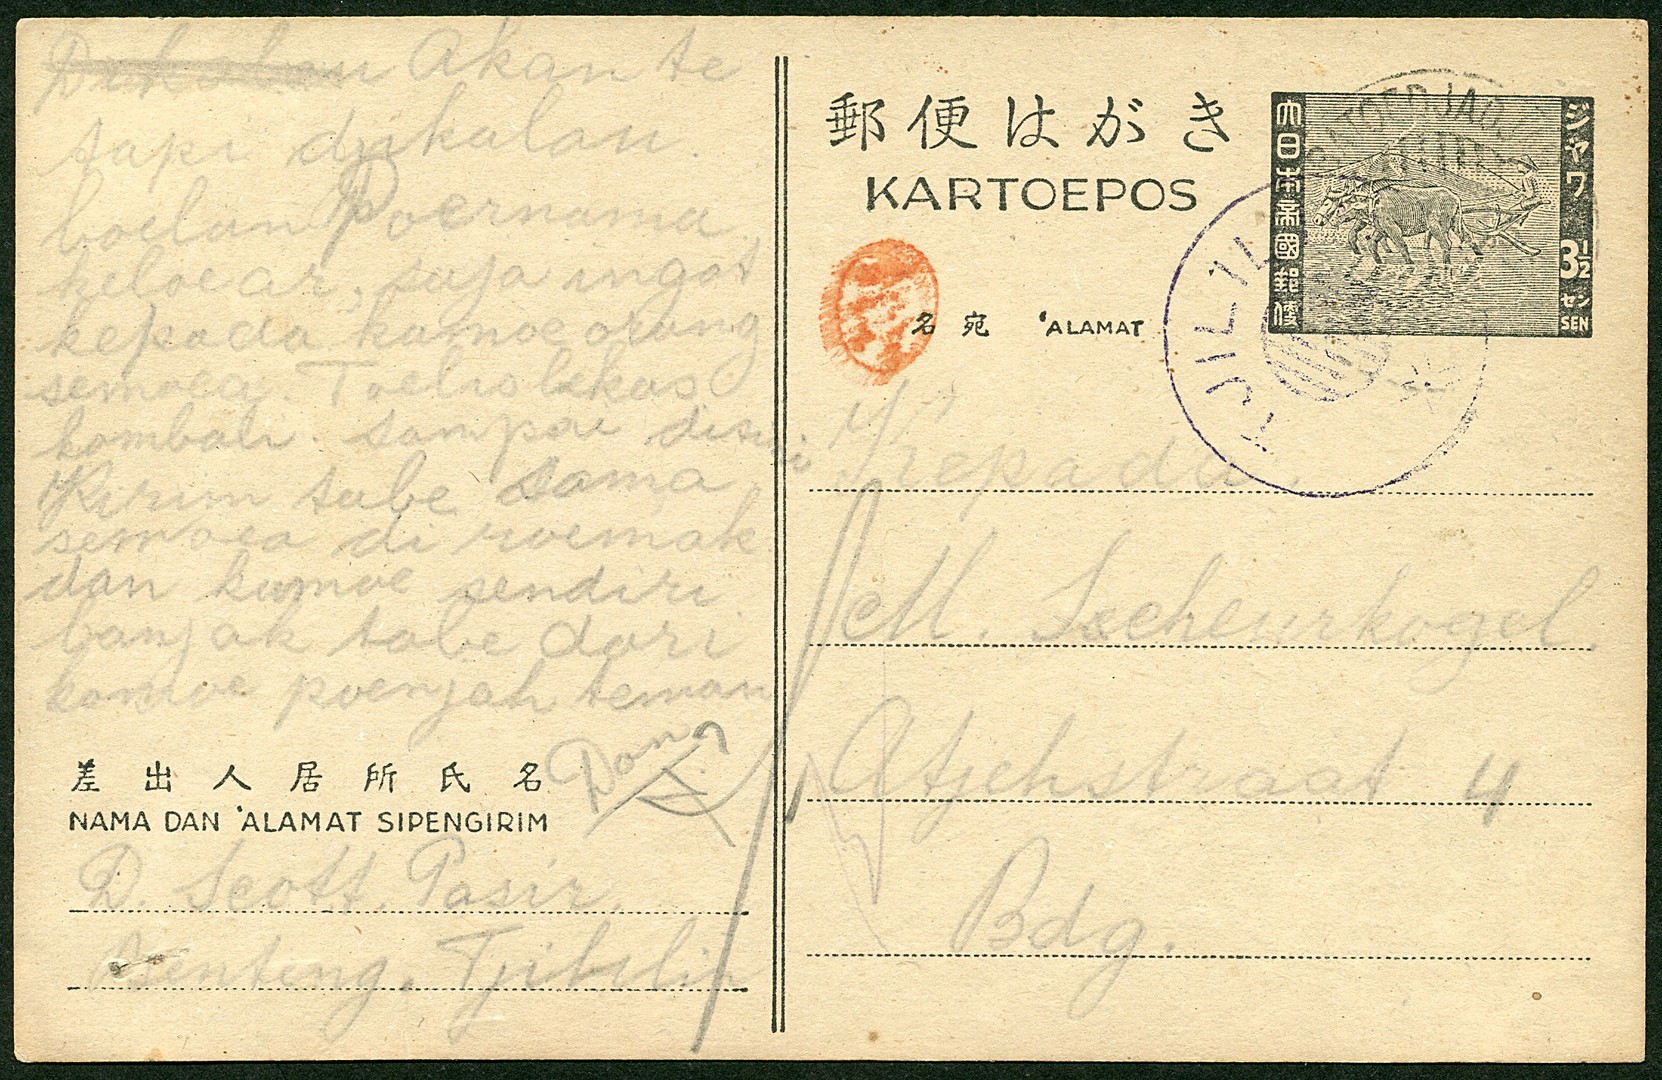 Akan te
tapi djikalau
boelan Poernama
keloear, saja ingat
kepada kamoe orang
semoea Toelis lekas
kombali sampai disini
Kirim tabe sama
semoea di roemah
dan kamoe sendiri
banjak tabe dari
kamoe poenjah teman
Don
差出人居所氏名
NAMA DAN 'ALAMAT SIPENGIRIM
D. Scott. Pasir
Benteng, Tjibilir
郵便はがき
KARTOEPOS
大日本帝國郵便
ジャワ
3½
セン
SEN
名宛 'ALAMAT
TJILIL
Kepada
M. Scheurkogel.
Atjehstraat 4
Bdg.